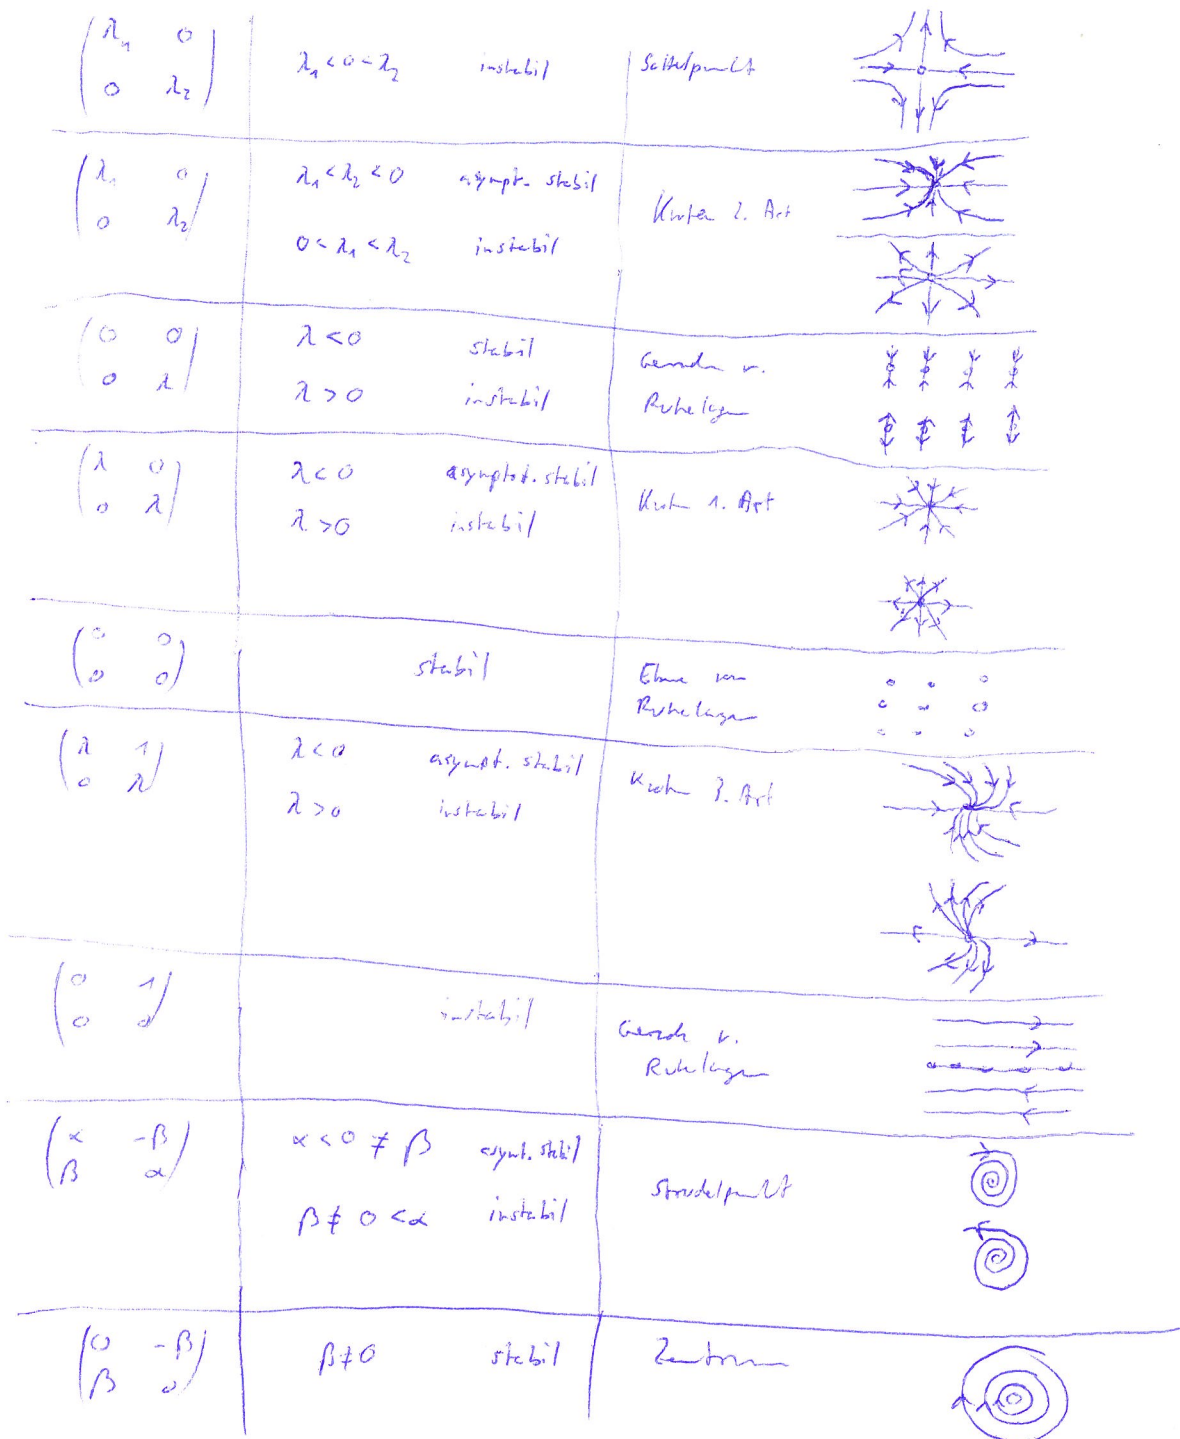 (λ₁ 0
0 λ₂) λ₁ < 0 < λ₂ instabil Sattelpunkt
(λ₁ 0
0 λ₂) λ₁ < λ₂ < 0 asympt. stabil
0 < λ₁ < λ₂ instabil
Knoten 2. Art
(0 0
0 λ) λ < 0 stabil
λ > 0 instabil
Geraden v.
Ruhelagen
(λ 0
0 λ) λ < 0 asymptot. stabil
λ > 0 instabil
Knoten 1. Art
(0 0
0 0) stabil
Ebene von
Ruhelagen
(λ 1
0 λ) λ < 0 asympt. stabil
λ > 0 instabil
Knoten 3. Art
(0 1
0 0) instabil
Geraden v.
Ruhelagen
(α -β
β α) α < 0 ≠ β asympt. stabil
β ≠ 0 < α instabil
Strudelpunkt
(0 -β
β 0) β ≠ 0 stabil Zentrum